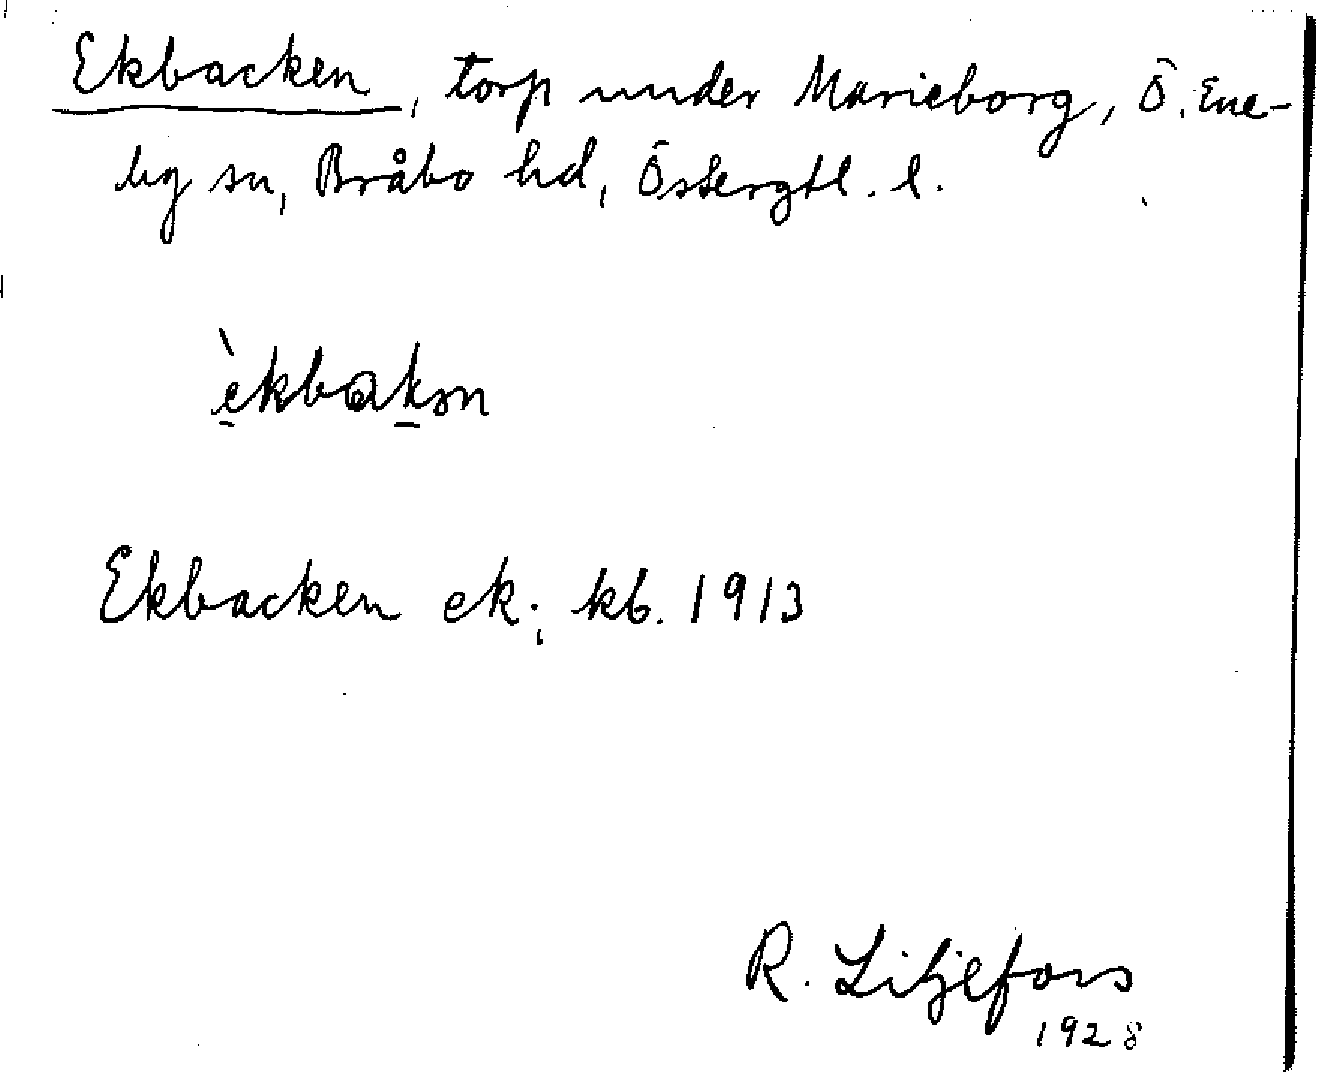 Ekbacken, torp under Marieborg, Ö. Ene-
by sn, Bråbo hd, Östergtl. l.
èkbakən
Ekbacken ek; kb. 1913
R. Liljefors
1928